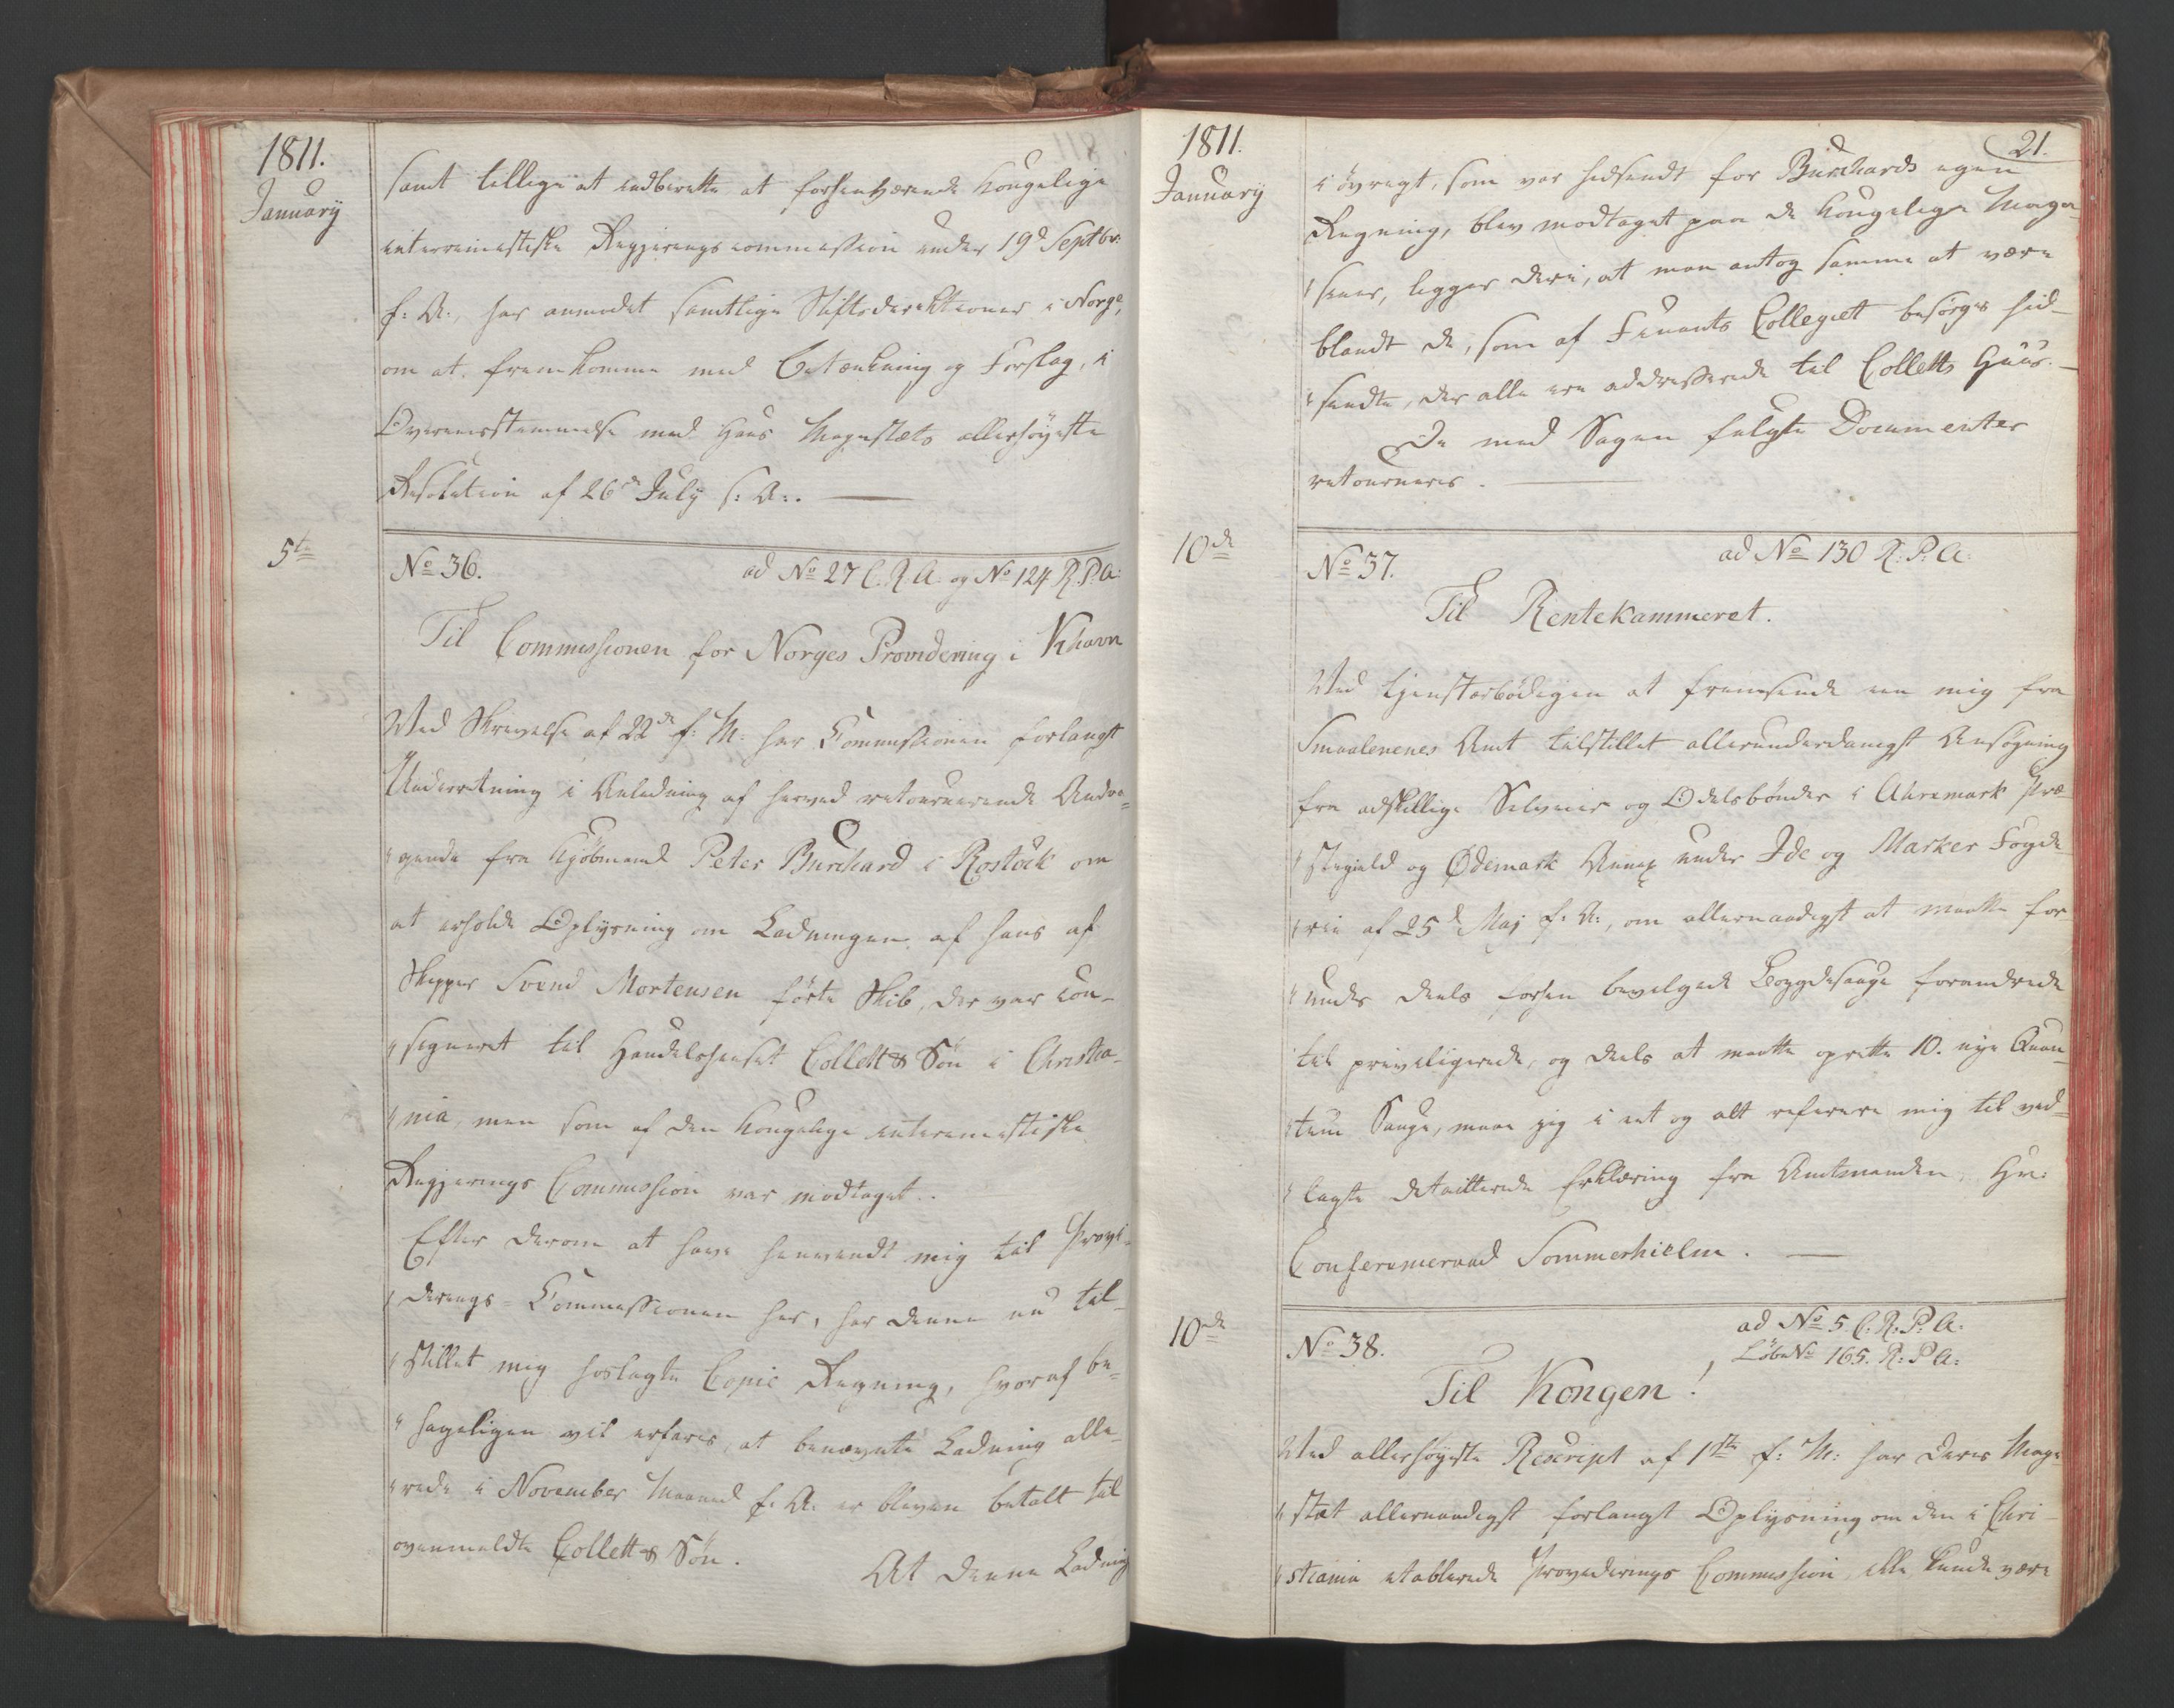 1811.
January
samt tillige at indberette at forhenværende Kongelige
interimistiske Regjerings commission under 19d Septbr:
f: A:, har anmodet samtlige Stiftsdirektioner i Norge,
om at fremkomme med Betænkning og Forslag, i
Overeensstemmelse med Hans Majestæts allerhöyeste
Resolution af 26de July s: A:. —
5te
No 36. ad No 27 C. R. A. og No 124 R. P. A:
Til Commissionen for Norges Providering i Khavn
Ved Skrivelse af 22de f: M: har Commissionen forlangt
Underretning i Anledning af herved retournerende Andra-
"gende fra Kjöbmand Peter Burchard i Rostock om
at erholde Oplysning om Ladningen af hans af
Skipper Svend Mortensen förte Skib, der var con-
"signeret til Handelshuset Collett & Sön i Christia-
"nia, men som af den Kongelige interimistiske
Regjerings Commission var modtaget.
Efter derom at have henvendt mig til Provi-
"derings-Commissionen her, har denne nu til-
"stillet mig hoslagte Copie Regning, hvoraf be-
"hageligen vil erfares, at benævnte Ladning alle-
"rede i November Maaned f. A. er bleven betalt til
ovenmeldte Collett & Sön.
At denne Ladning
1811.
January
21.
i övrigt, som var hidsendt for Burchards egen
Regning, blev modtaget paa de Kongelige Maga-
"siner, ligger deri, at man antog samme at være
blandt de, som af Finants Collegiet besörges hid-
"sendte, der alle ere addresserede til Colletts Huus.—
De med Sagen fulgte Documenter
retourneres. —
10de
No 37. ad No 130 R: P: A:
Til Rentekammeret.
Ved tjenstærbödigen at fremsende een mig fra
Smaalenenes Amt tilstillet allerunderdanigst Ansögning
fra adskillige Selveier og Odelsbönder i Aremark Præ-
"stegield og Ødemark Annex under Ide og Marker Fogde-
"rie af 25d Maj f: A:, om allernaadigst at maatte for-
"undes deels forhen bevilgede Boygdesauge forandrede
til priviligerede, og deels at maatte oprette 10. nye Quan-
"tum Sauge, maa jeg i eet og alt referere mig til ved-
"lagte detaillerede Erklæring fra Amtmanden, Hr:
Conferenceraad Sommerhielm. —
10de
No 38. ad No 5 C: R: P: A:
LöbeNo 165. R: P A:
Til Kongen!
Ved allerhöyeste Rescript af 1ste f: M: har Deres Maje-
"stæt allernaadigst forlangt Oplysning om den i Chri-
"stiania etablerede Providerings Commission ikke kunde være